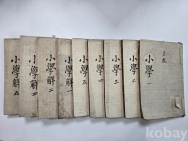 小學解 五
小學解 四
小學解 二
小學解 一
小學 五
小學 四
小學 三
小學 二
小學 一
kobay